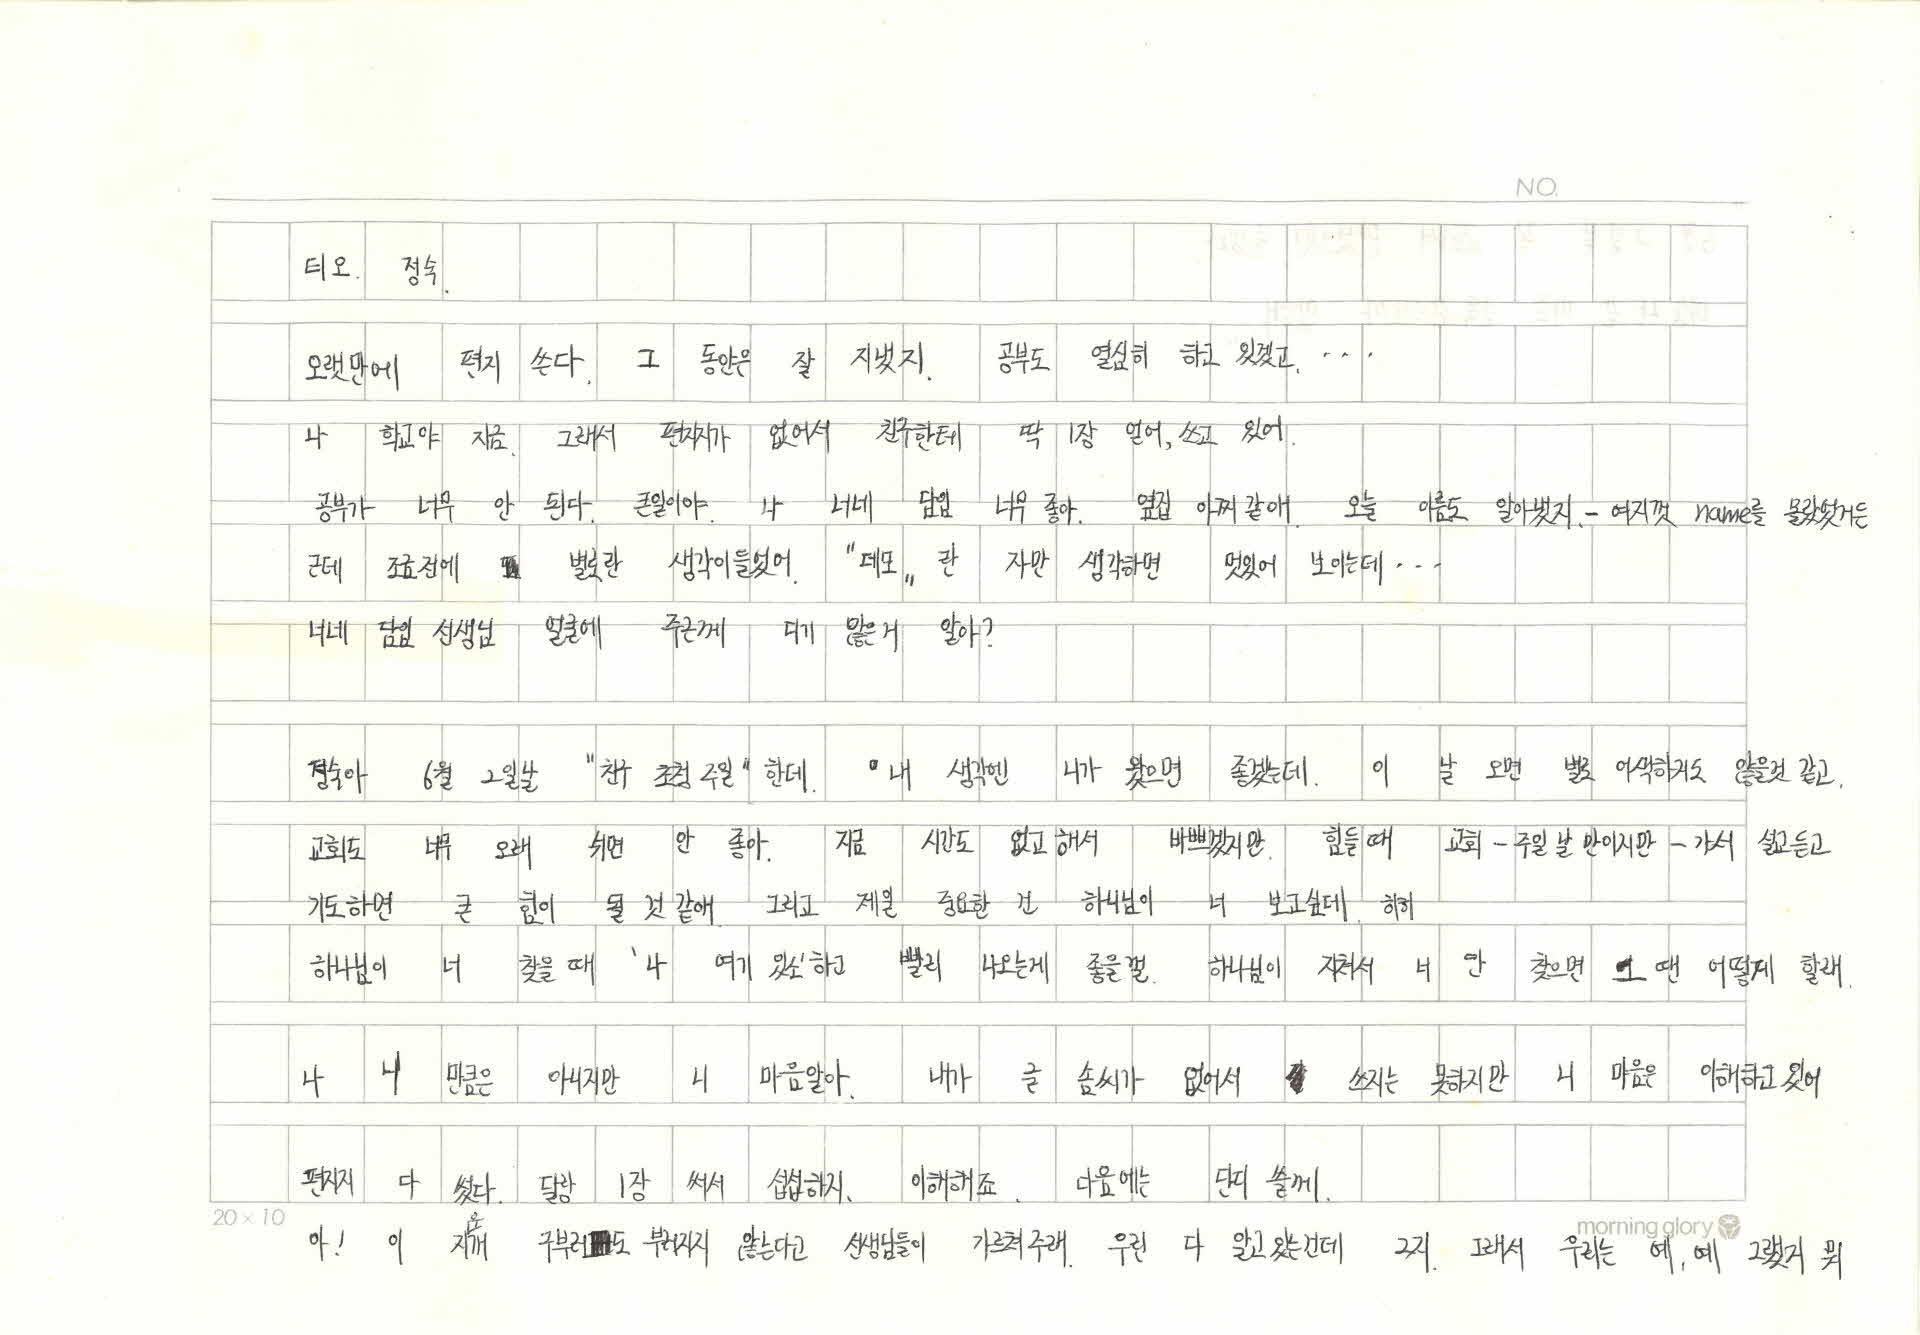 NO.
티오. 정숙.
오랫만에 편지 쓴다. 그 동안은 잘 지냈지. 공부도 열심히 하고 있겠고. ····
나 학교야 지금. 그래서 편지지가 없어서 친구한테 딱 1장 얻어, 쓰고 있어.
공부가 너무 안 된다. 큰일이야. 나 너네 담임 너무 좋아. 옆집 아찌 같애. 오늘 이름도 알아냈지.- 여지껏 name를 몰랐었거든
근데 조금전에 별로란 생각이들었어. "데모„ 란 자만 생각하면 멋있어 보이는데···
너네 담임 선생님 얼굴에 주근깨 디기 많은거 알아?
정숙아 6월 2일날 "친구 초청 주일" 한데. 내 생각엔 니가 왔으면 좋겠는데. 이 날 오면 별로 어색하지도 않을것 같고.
교회도 너무 오래 쉬면 안 좋아. 지금 시간도 없고 해서 바쁘겠지만. 힘들때 교회 - 주일날 만이지만 - 가서 설교듣고
기도하면 큰 힘이 될 것 같애. 그리고 제일 중요한 건 하나님이 너 보고싶데. 히히
하나님이 너 찾을 때 '나 여기 있소'하고 빨리 나오는게 좋을껄. 하나님이 지쳐서 너 안 찾으면 그 땐 어떻게 할래.
나 너 만큼은 아니지만 니 마음알아. 내가 글 솜씨가 없어서 쓰지는 못하지만 니 마음은 이해하고 있어
편지지 다 썼다. 달랑 1장 써서 섭섭하지. 이해해죠. 다음에는 단디 쓸께.
20×10
morning glory
아! 이 지우개 구부려도 부러지지 않는다고 선생님들이 가르쳐 주래. 우린 다 알고있는건데 그지. 그래서 우리는 예, 예 그랬지 뭐